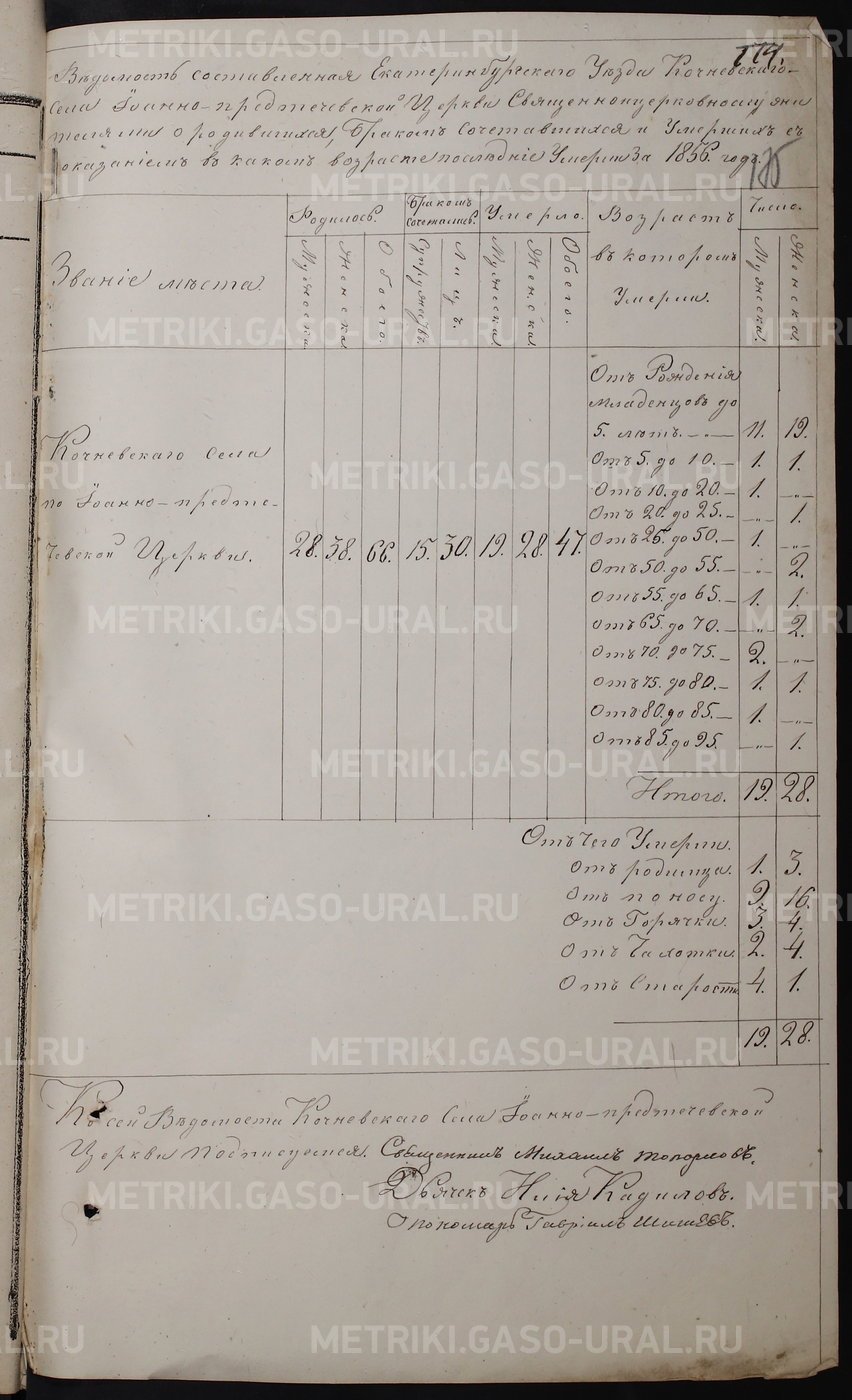 174.
Вѣдомость составленная Екатеринбургскаго Уѣзда Кочневскаго
села Іоанно-предтечевской Церкви Священноцерковнослужи
телями о родившихся, Бракомъ сочетавшихся и Умершихъ съ
показаніемъ въ какомъ возрастѣ послѣдніе Умерли За 1856. годъ.
175
Званіе мѣста.
Родилось.
Бракомъ сочетались.
Умерло.
Возрастъ въ которомъ Умерли.
Число.
Мужеска
Женска
Обоего.
Супружествъ
Лицъ.
Мужеска
Женска
Обоего.
Мужеска.
Женска.
Кочневскаго Села
по Іоанно-предте-
чевской Церкви. 28. 38. 66. 15. 30. 19. 28. 47.
Отъ Рожденія
младенцовъ до
5. лѣтъ. — 11. 19.
Отъ 5. до 10. — 1. 1.
Отъ 10. до 20. — 1. —"—
Отъ 20. до 25. — —"— 1.
Отъ 25. до 50. — 1. —"—
Отъ 50. до 55. — —"— 2.
Отъ 55. до 65. — 1. 1.
Отъ 65. до 70. — —"— 2.
Отъ 70. до 75. — 2. —"—
Отъ 75. до 80. — 1. 1.
Отъ 80. до 85. — 1. —"—
Отъ 85. до 95. —"— 1.
Итого. 19. 28.
Отъ Чего Умерли.
Отъ родимца. 1. 3.
Отъ поносу. 9. 16.
Отъ Горячки. 3. 4.
Отъ Чахотки. 2. 4.
Отъ Старости. 4. 1.
19. 28.
Къ сей Вѣдомости Кочневскаго Села Іоанно-предтечевской
Церкви Подписуемся. Священникъ Михаилъ Топорковъ.
Дьячекъ Илія Кадиловъ.
Пономарь Гавріилъ Шишевъ.
METRIKI.GASO-URAL.RU